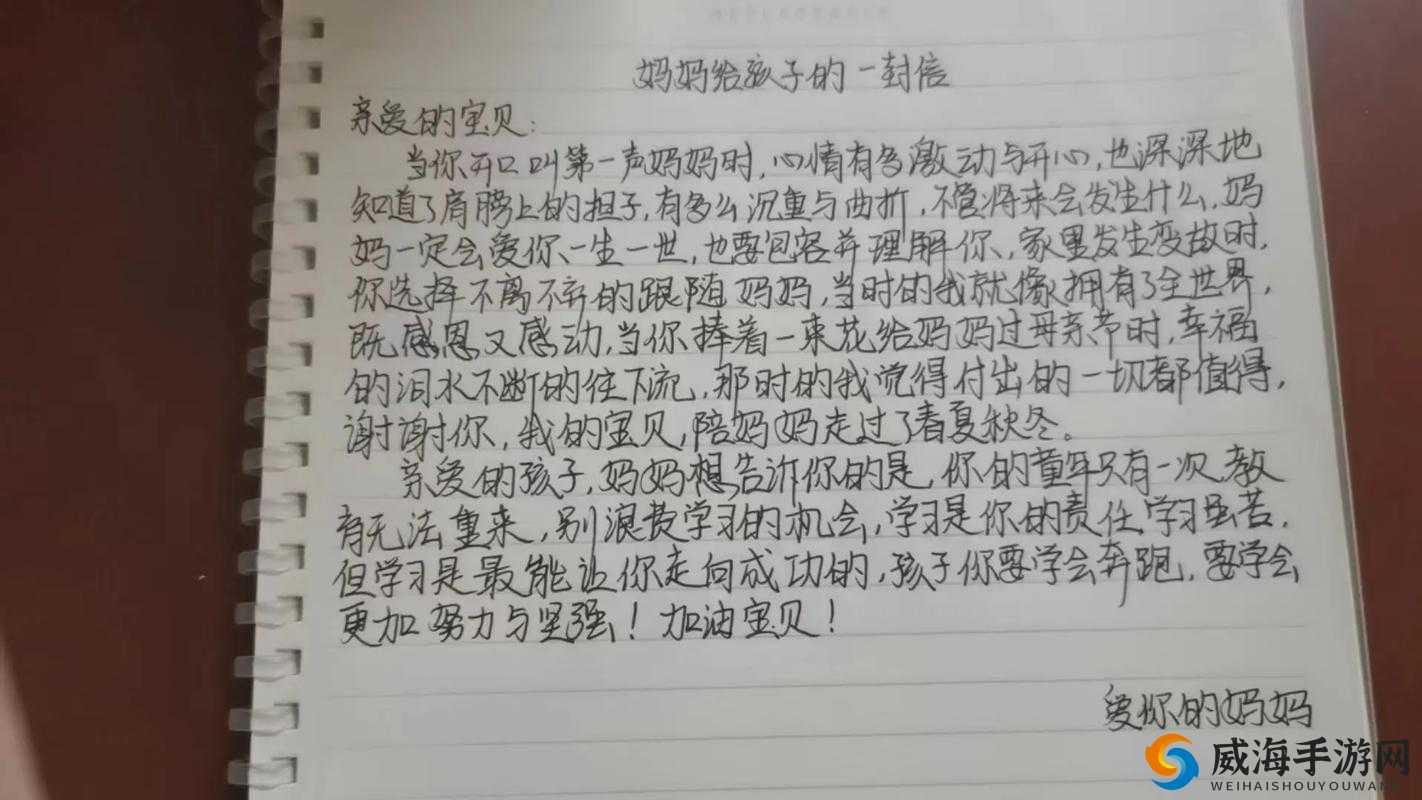 妈妈给孩子的一封信
亲爱的宝贝：
当你开口叫第一声妈妈时，心情有多激动与开心，也深深地
知道了肩膀上的担子，有多么沉重与曲折，不管将来会发生什么，妈
妈一定会爱你一生一世，也要包容并理解你、家里发生变故时，
你选择不离不弃的跟随妈妈，当时的我就像拥有了全世界，
既感恩又感动，当你捧着一束花给妈妈过母亲节时，幸福
的泪水不断的往下流，那时的我觉得付出的一切都值得，
谢谢你，我的宝贝，陪妈妈走过了春夏秋冬。
亲爱的孩子，妈妈想告诉你的是，你的童年只有一次，教
育无法重来，别浪费学习的机会，学习是你的责任，学习虽苦，
但学习是最能让你走向成功的，孩子你要学会奔跑，要学会
更加努力与坚强！加油宝贝！
爱你的妈妈
威海手游网
WEIHAISHOUYOUWANG